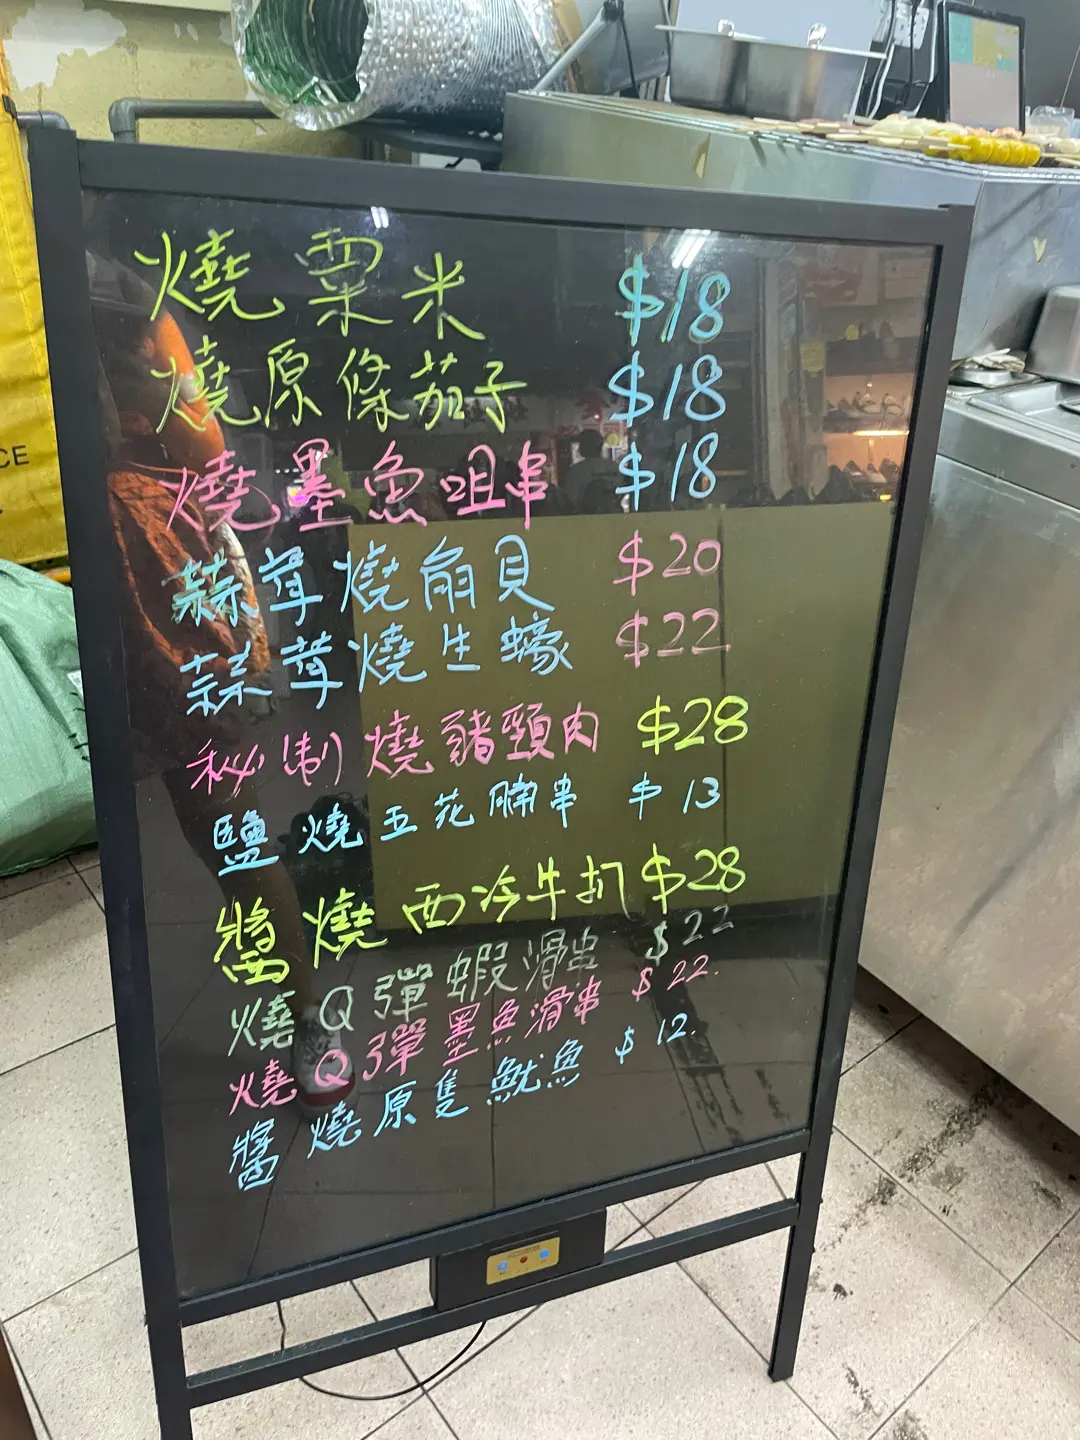 燒粟米 $18
燒原條茄子 $18
燒墨魚咀串 $18
蒜茸燒扇貝 $20
蒜茸燒生蠔 $22
秘制燒豬頸肉 $28
鹽燒五花腩串 $13
醬燒西冷牛扒 $28
燒Q彈蝦滑串 $22
燒Q彈墨魚滑串 $22.
醬燒原隻魷魚 $12.
CE